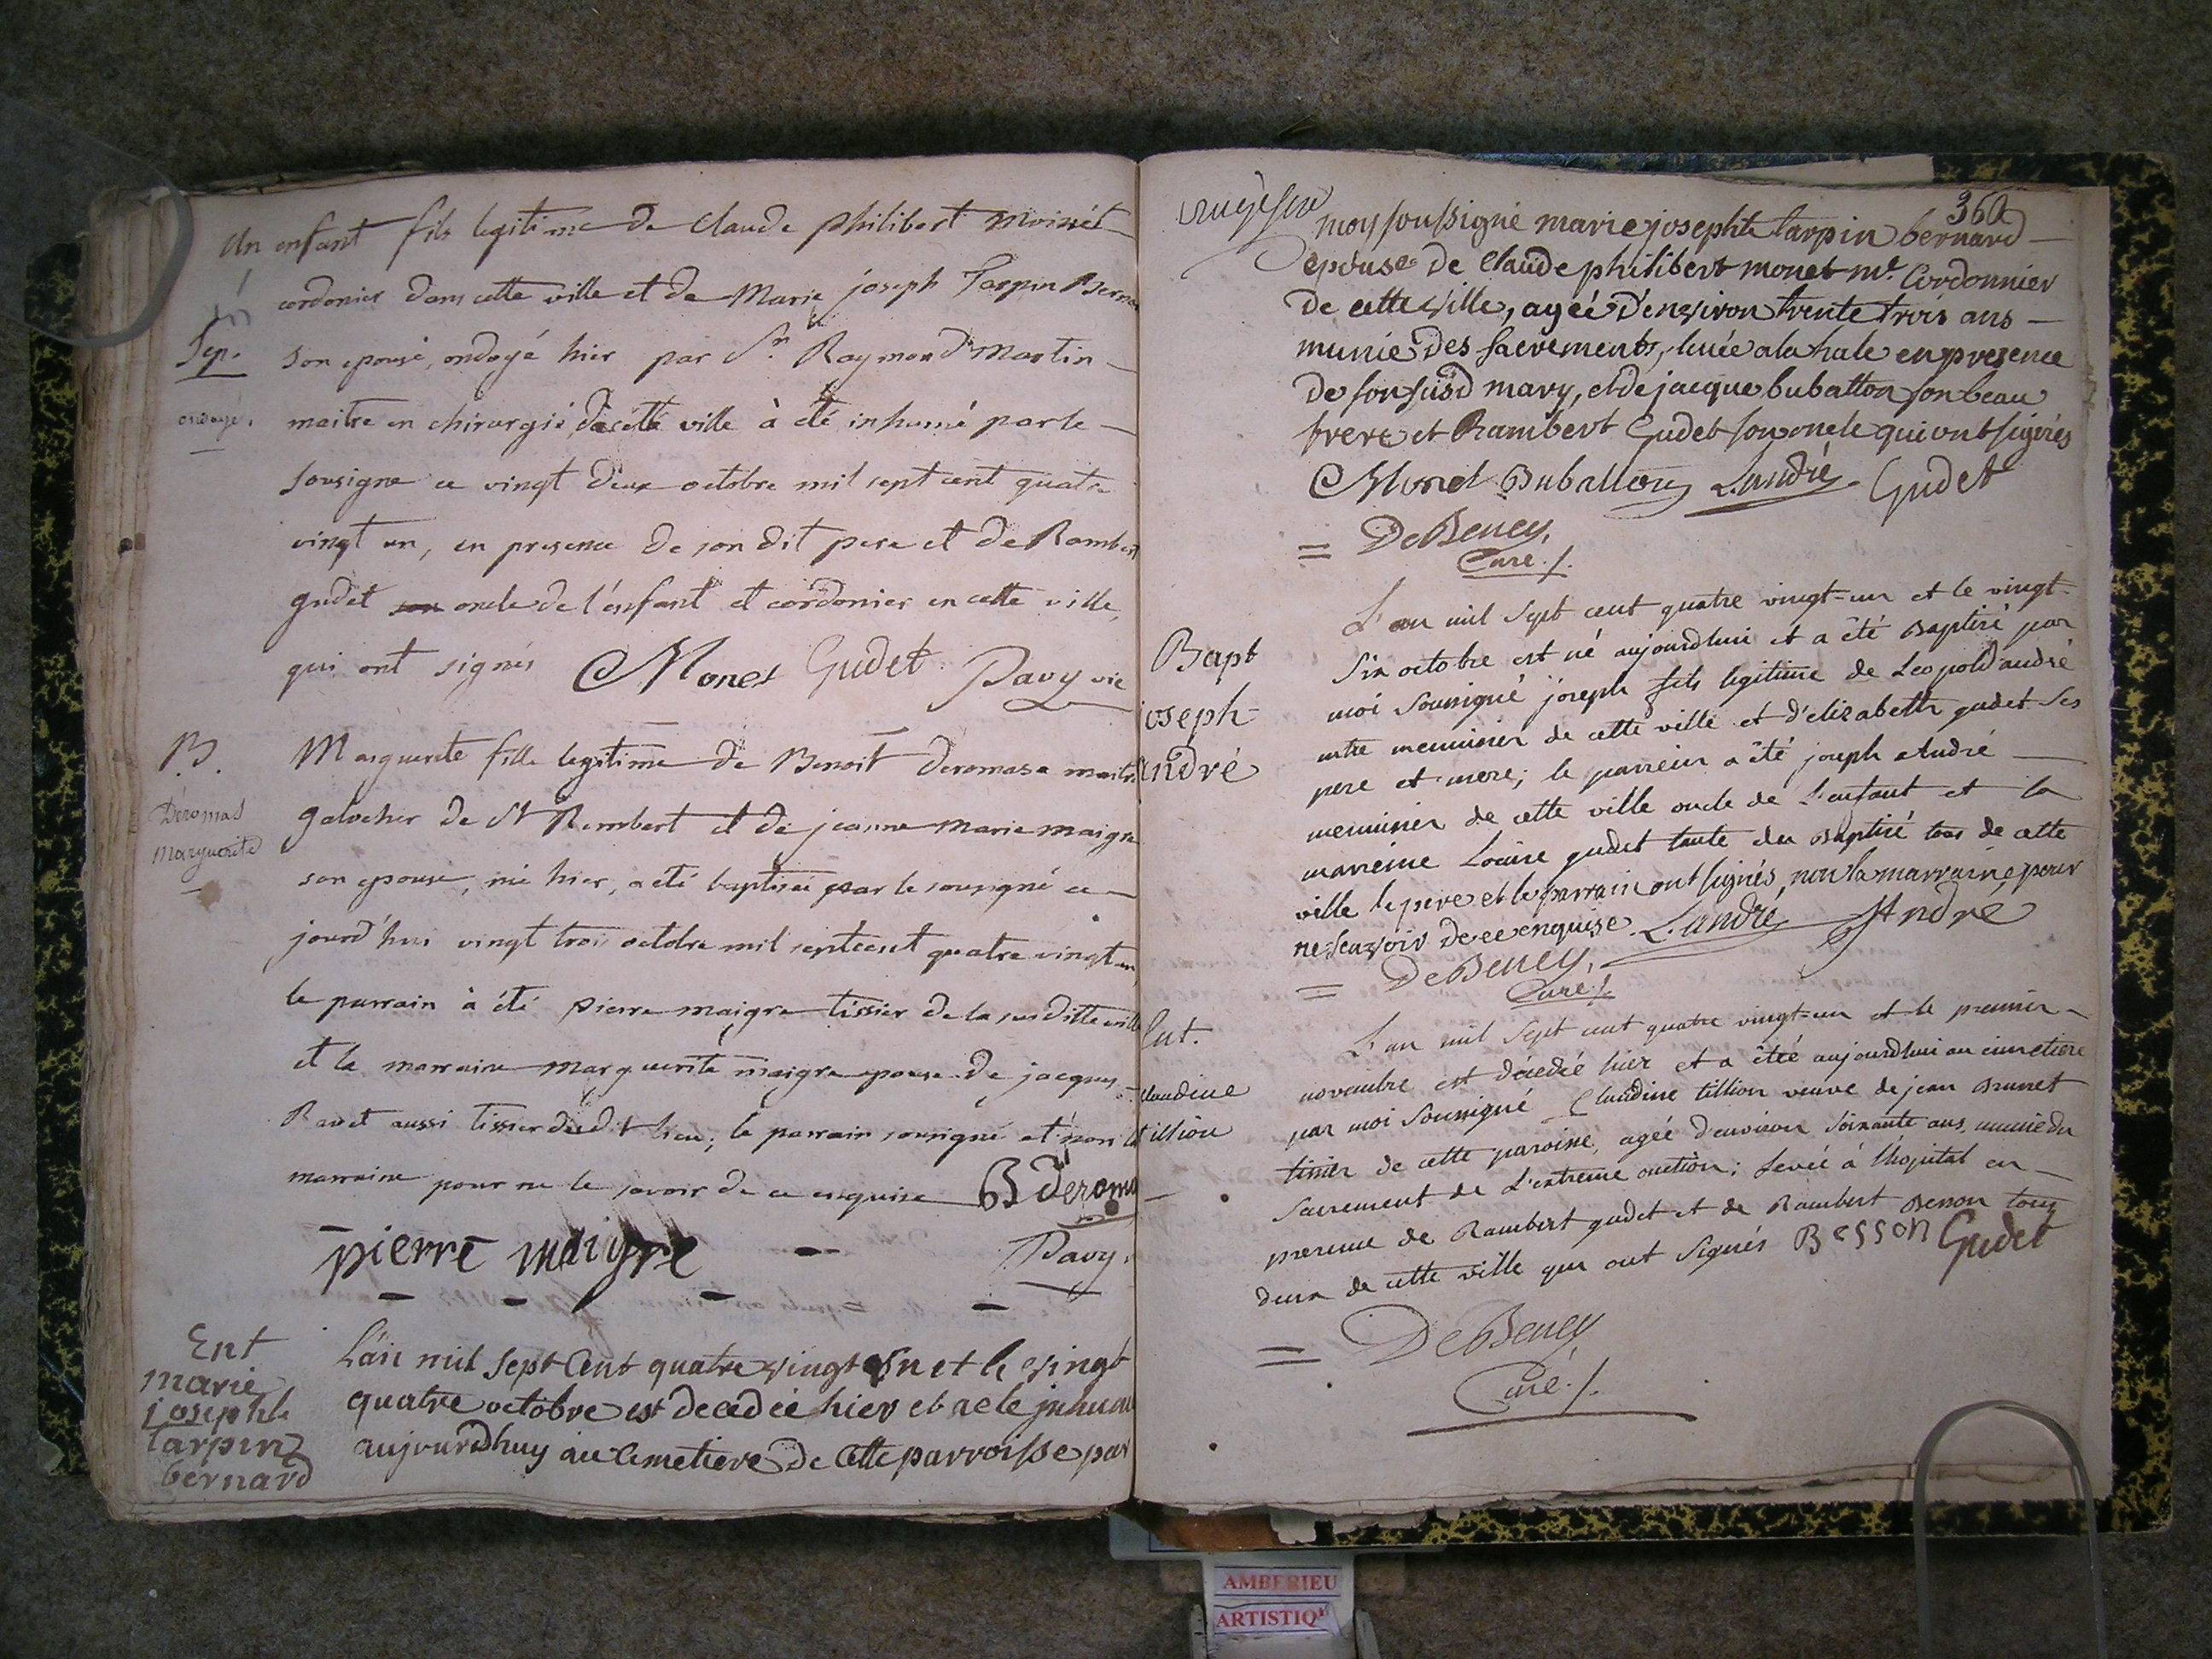 Un enfant fils legitime de Claude philibert Moinét
cordonier dans cette ville et de Marie joseph Tarpin Berna
Sep. son epouse, ondoyé hier par Sr. Raymond Martin
ondoyé. maitre en chirurgie de cette ville à été inhumé par le
sousigne ce vingt deux octobre mil sept cent quatre
vingt un, en presence de son dit pere et de Rambert
gudet oncle de l'enfant et cordonier en cette ville,
qui ont signés CMonet Gudet Pavy vic
B. Marguerite fille legitime de Benoit deromas maitre
Deromas
Marguerite
galocher de St Rembert et de jeanne marie maigre
son epouse, née hier, a été baptisée par le sousigné ce
jourd'hui vingt trois octobre mil septcent quatre vingt un
le parrain à été pierre maigre tissier de la susditte ville
et la marraine marguerite maigre epouse de jacques
Ravet aussi tissier dudit lieu; le parrain sousigné et non la
marraine pour ne le savoir de ce enquise B deroma
pierre maigre Pavy.
Ent
marie
josephte
tarpin
bernard
L'an mil sept cent quatre vingt un et le vingt
quatre octobre est decedée hier et a eté inhumé
aujourdhuy au cemetiere de cette parroisse par
360
moy soussigné marie josephte tarpin bernard
epouse de Claude philibert monet me. Cordonnier
de cette ville, agée d'environ trente trois ans
munie des sacrements, levée a la hale en presence
de son susd mary, et de jacque buballon son beau
frere et Rambert Gudet son oncle qui ont signés
CMonet Buballon L.andré Gudet
= De Beney,
Curé ./.
Bapt
joseph
andré
L'an mil sept cent quatre vingt-un et le vingt-
six octobre est né aujourdhui et a été baptisé par
moi soussigné joseph fils legitime de Leopold andré
mtre menuisier de cette ville et d'elizabeth gudet ses
pere et mere; le parrein a été joseph André
menuisier de cette ville oncle de l'enfant et la
marreine Louise gudet tante du baptisé tous de cette
ville le pere et le parrain ont signés, non la marraine pour
ne scavoir de ce enquise. L.andré J André
= De Beney,
Curé ./.
Ent.
claudine
tillion
L'an mil sept cent quatre vingt-un et le premier
novembre est décedée hier et a été aujourdhui au cimetiere
par moi soussigné Claudine tillion veuve de jean Brunet
tissier de cette paroisse, agée d'environ soixante ans, munie du
sacrement de L'extreme onction; levée à l'hopital en
presence de Rambert gudet et de Rambert Besson tous
deux de cette ville qui ont signés Besson Gudet
= De Beney
Curé ./.
AMBERIEU
ARTISTIQ